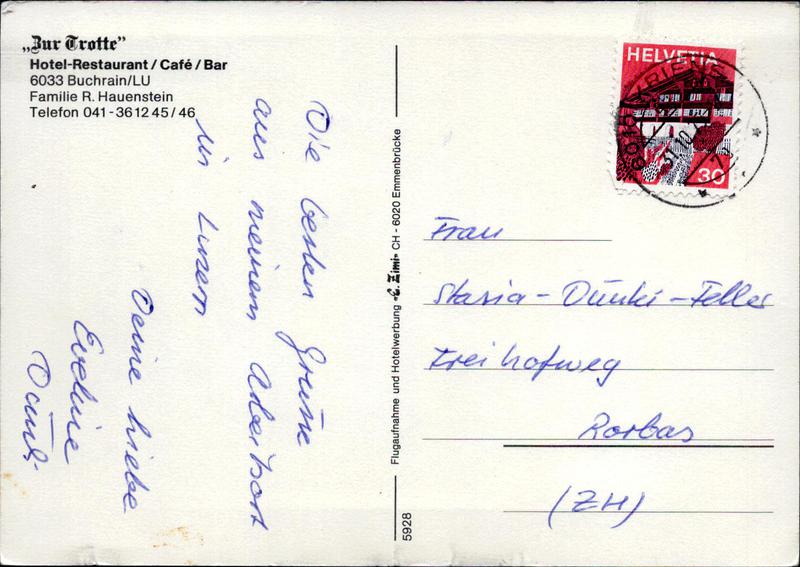 „Zur Trotte”
Hotel-Restaurant / Café / Bar
6033 Buchrain/LU
Familie R. Hauenstein
Telefon 041 - 36 12 45 / 46
Die besten Grüsse
aus meinem Arbeitsort
in Luzern
Deine liebe
Eveline
Dünki
Flugaufnahme und Hotelwerbung «E. Zimi» CH - 6020 Emmenbrücke
5928
HELVETIA
30
6010 KRIENS
31.10.
Frau
Stasia - Dünki - Feller
Freihofweg
Rorbas
(ZH)